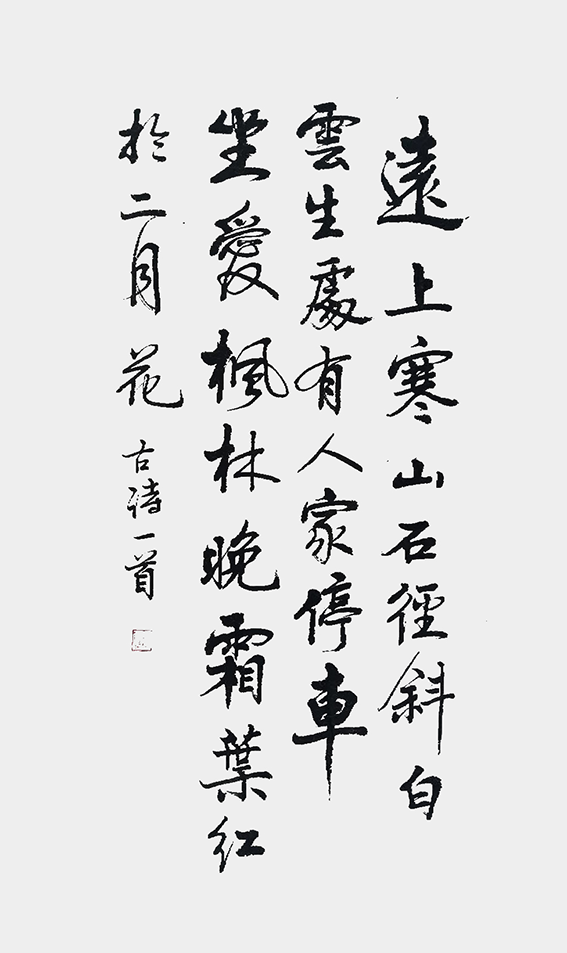 遠上寒山石徑斜白
雲生處有人家停車
坐愛楓林晚霜葉紅
於二月花古詩一首